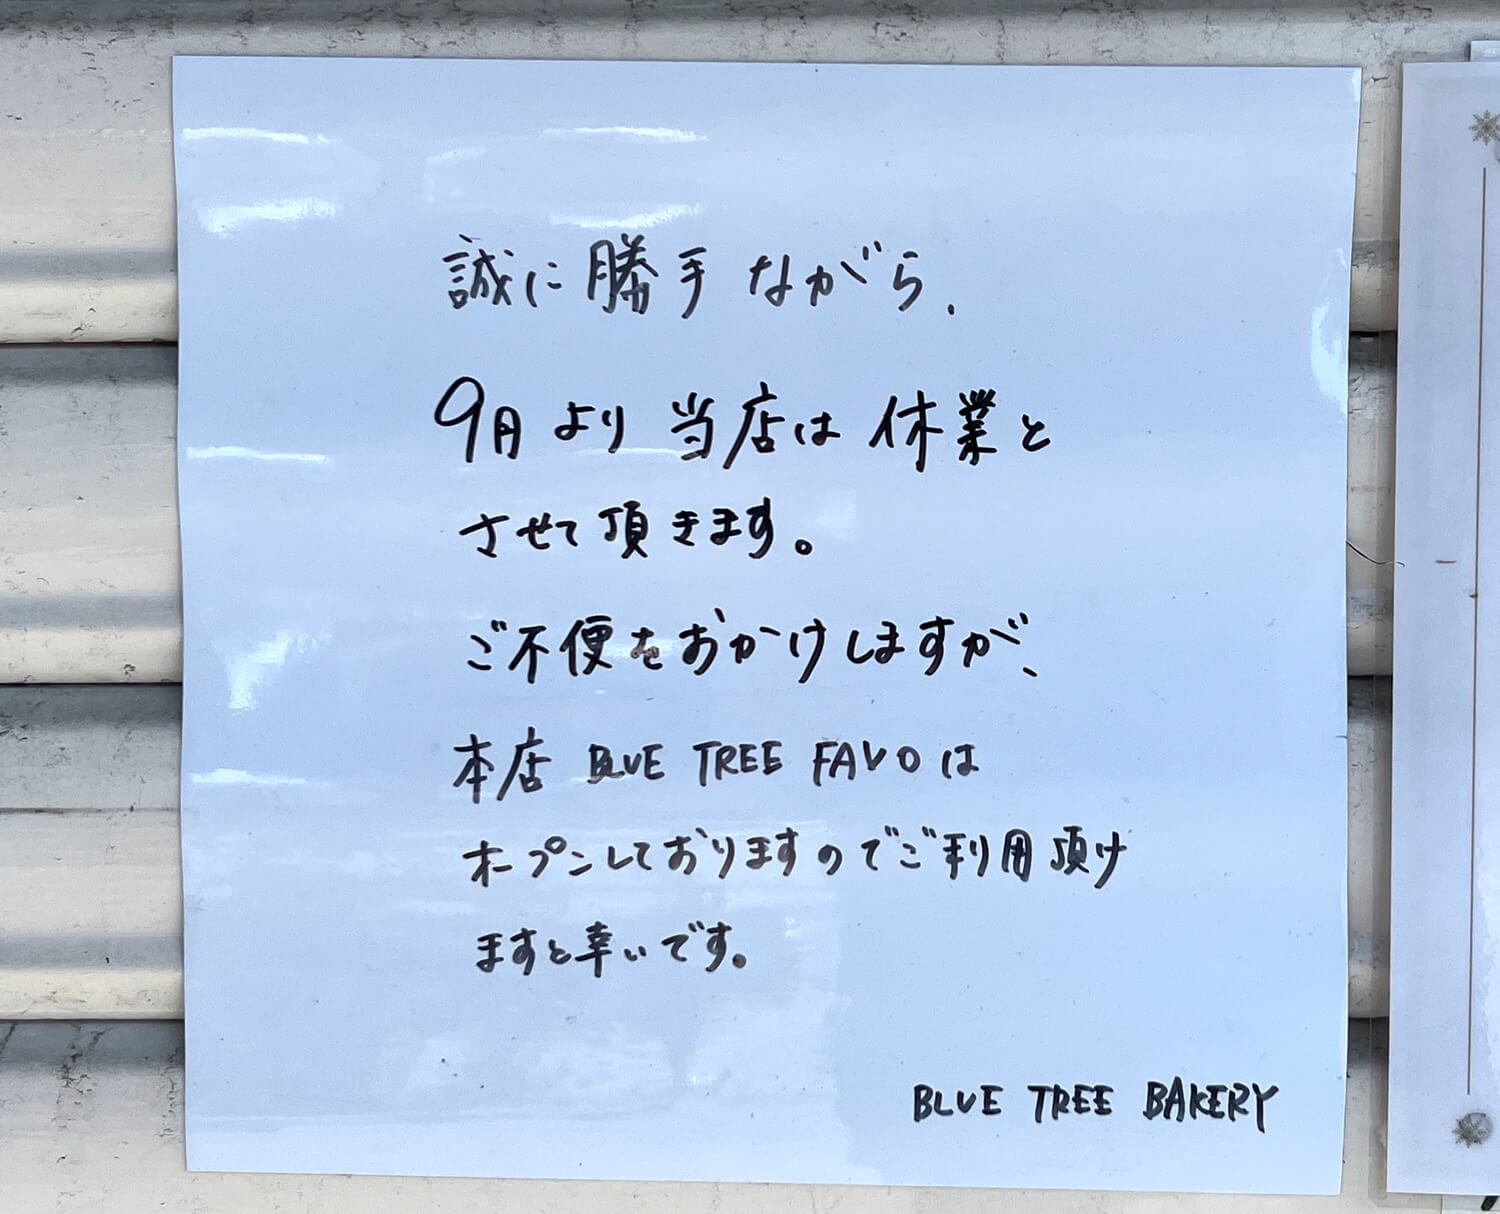 誠に勝手ながら、
9月より当店は休業と
させて頂きます。
ご不便をおかけしますが、
本店 BLUE TREE FAVOは
オープンしておりますのでご利用頂け
ますと幸いです。
BLUE TREE BAKERY